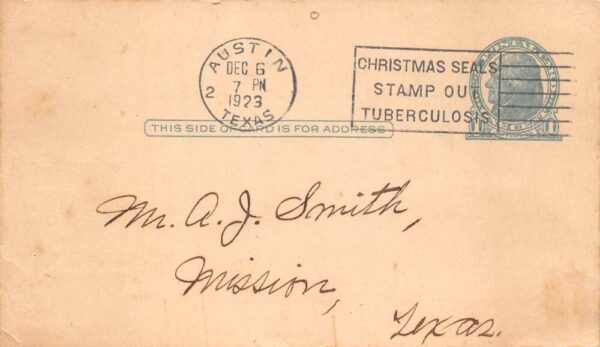 AUSTIN
DEC 6
7 PM
1923
2
TEXAS
CHRISTMAS SEALS
STAMP OUT
TUBERCULOSIS
THIS SIDE OF CARD IS FOR ADDRESS
Mr. A. J. Smith,
Mission,
Texas.